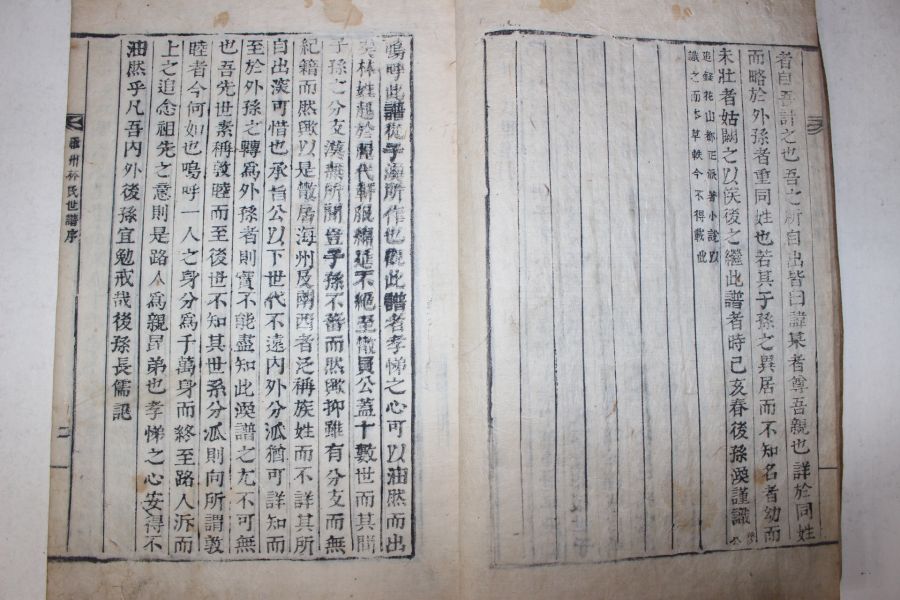 者自吾計之也吾之所自出皆曰諱某者尊吾親也詳於同姓
而略於外孫者重同姓也若其子孫之異居而不知名者幼而
未壯者姑闕之以俟後之繼此譜者時己亥春後孫渙謹識
追錄花山都正派著小說以
識之而本草軼今不得載此
嗚呼此譜從子渙所作也觀此譜者孝悌之心可以油然而出
矣林姓起於麗代軒服綿延不絶至散員公蓋十數世而其間
子孫之分支漠無所聞豈子孫不蕃而然歟抑雖有分支而無
紀籍而然歟以是散居海州及關西者泛稱族姓而不詳其所
自出深可惜也承旨公以下世代不遠內外分派猶可詳知而
至於外孫之轉爲外孫者則實不能盡知此渙譜之尤不可無
也吾先世素稱敦睦而至後世不知其世系分派則向所謂敦
睦者今何如也嗚呼一人之身分爲千萬身而終至路人泝而
上之追念祖先之意則是路人爲親昆弟也孝悌之心安得不
油然乎凡吾內外後孫宜勉戒哉後孫長儒記
羅州林氏世譜序
二